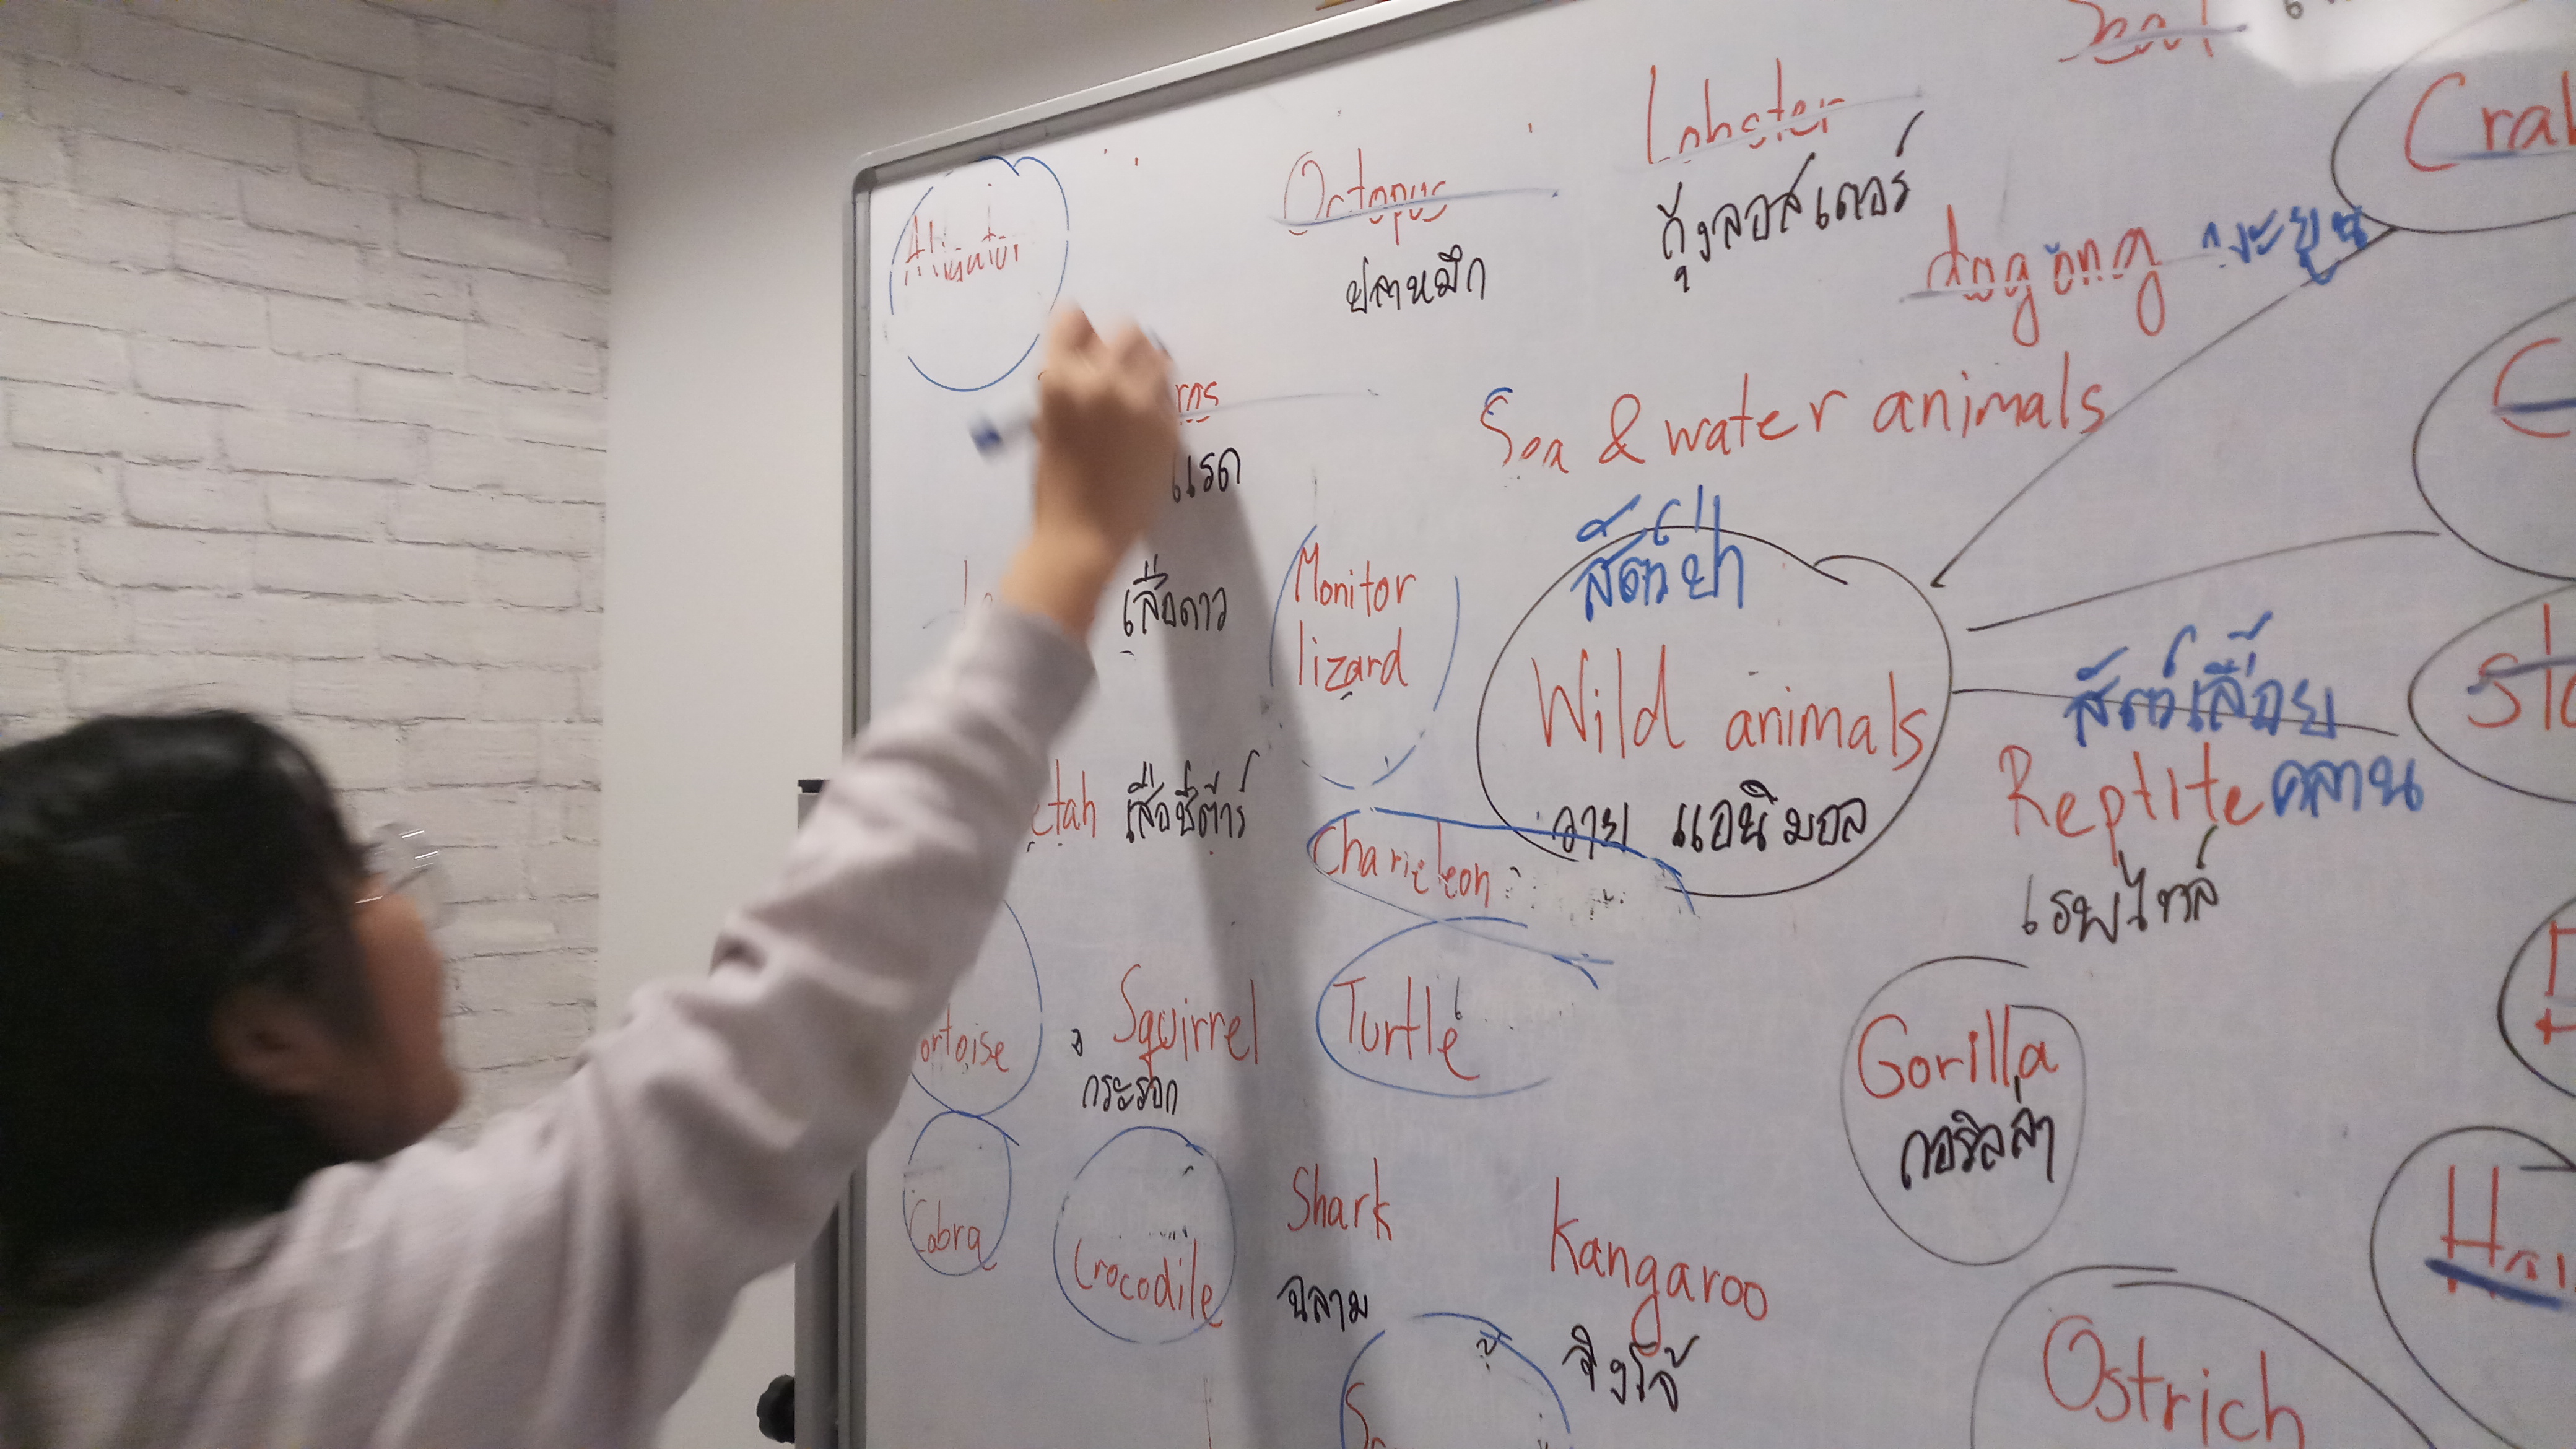 Octopus
ปลาหมึก
Lobster
กุ้งลอสเตอร์
dogong
Sea & water animals
แรด
เสือดาว
Monitor
lizard
สัตว์ป่า
Wild animals
วาย แอนิมอล
สัตว์เลื้อย
Reptite คลาน
เรพไทล์
etah เสือชีต้าร์
Chameleon
ortoise
Squirrel
กระรอก
Turtle
Gorilla
กอริลล่า
Cobra
Crocodile
Shark
ฉลาม
Kangaroo
จิงโจ้
Ostrich